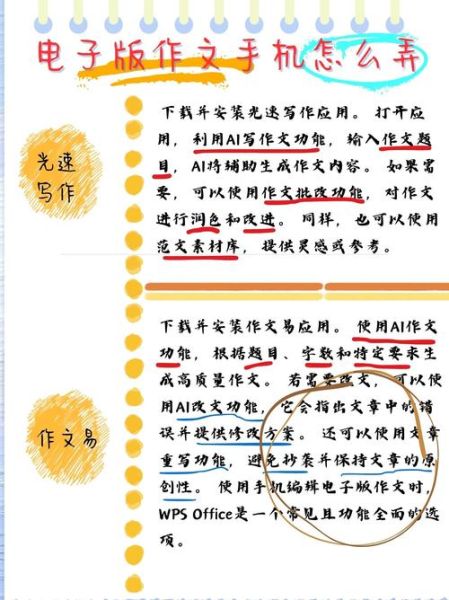 电子版作文手机怎么弄
光速
写作
下载并安装光速写作应用。打开应
用，利用AI写作文功能，输入作文题
目，AI将辅助生成作文内容。如果需
要，可以使用作文批改功能，对作文
进行润色和改进。同样，也可以使用
范文素材库，提供灵感或参考。
作文易
下载并安装作文易应用。使用AI作文
功能，根据题目、字数和特定要求生
成高质量作文。若需要改文，可以使
用AI改文功能，它会指出文章中的错
误并提供修改方案。还可以使用文章
重写功能，避免抄袭并保持文章的原
创性。使用手机编辑电子版作文时，
WPS Office是一个常见且功能全面的选
项。